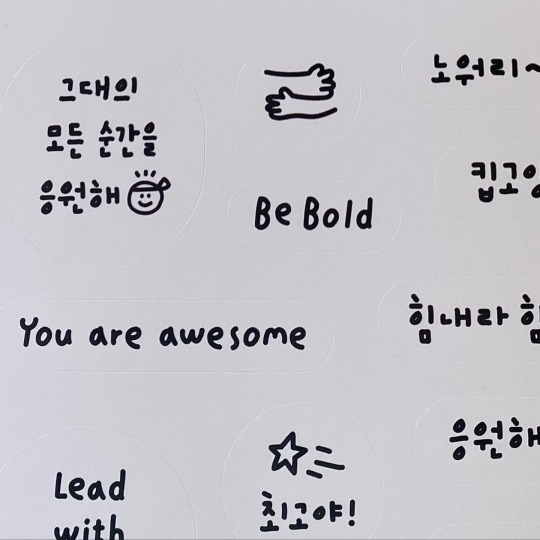 그대의
모든 순간을
응원해
노워리~
킵고
Be Bold
You are awesome
힘내라
응원해
최고야!
Lead
with